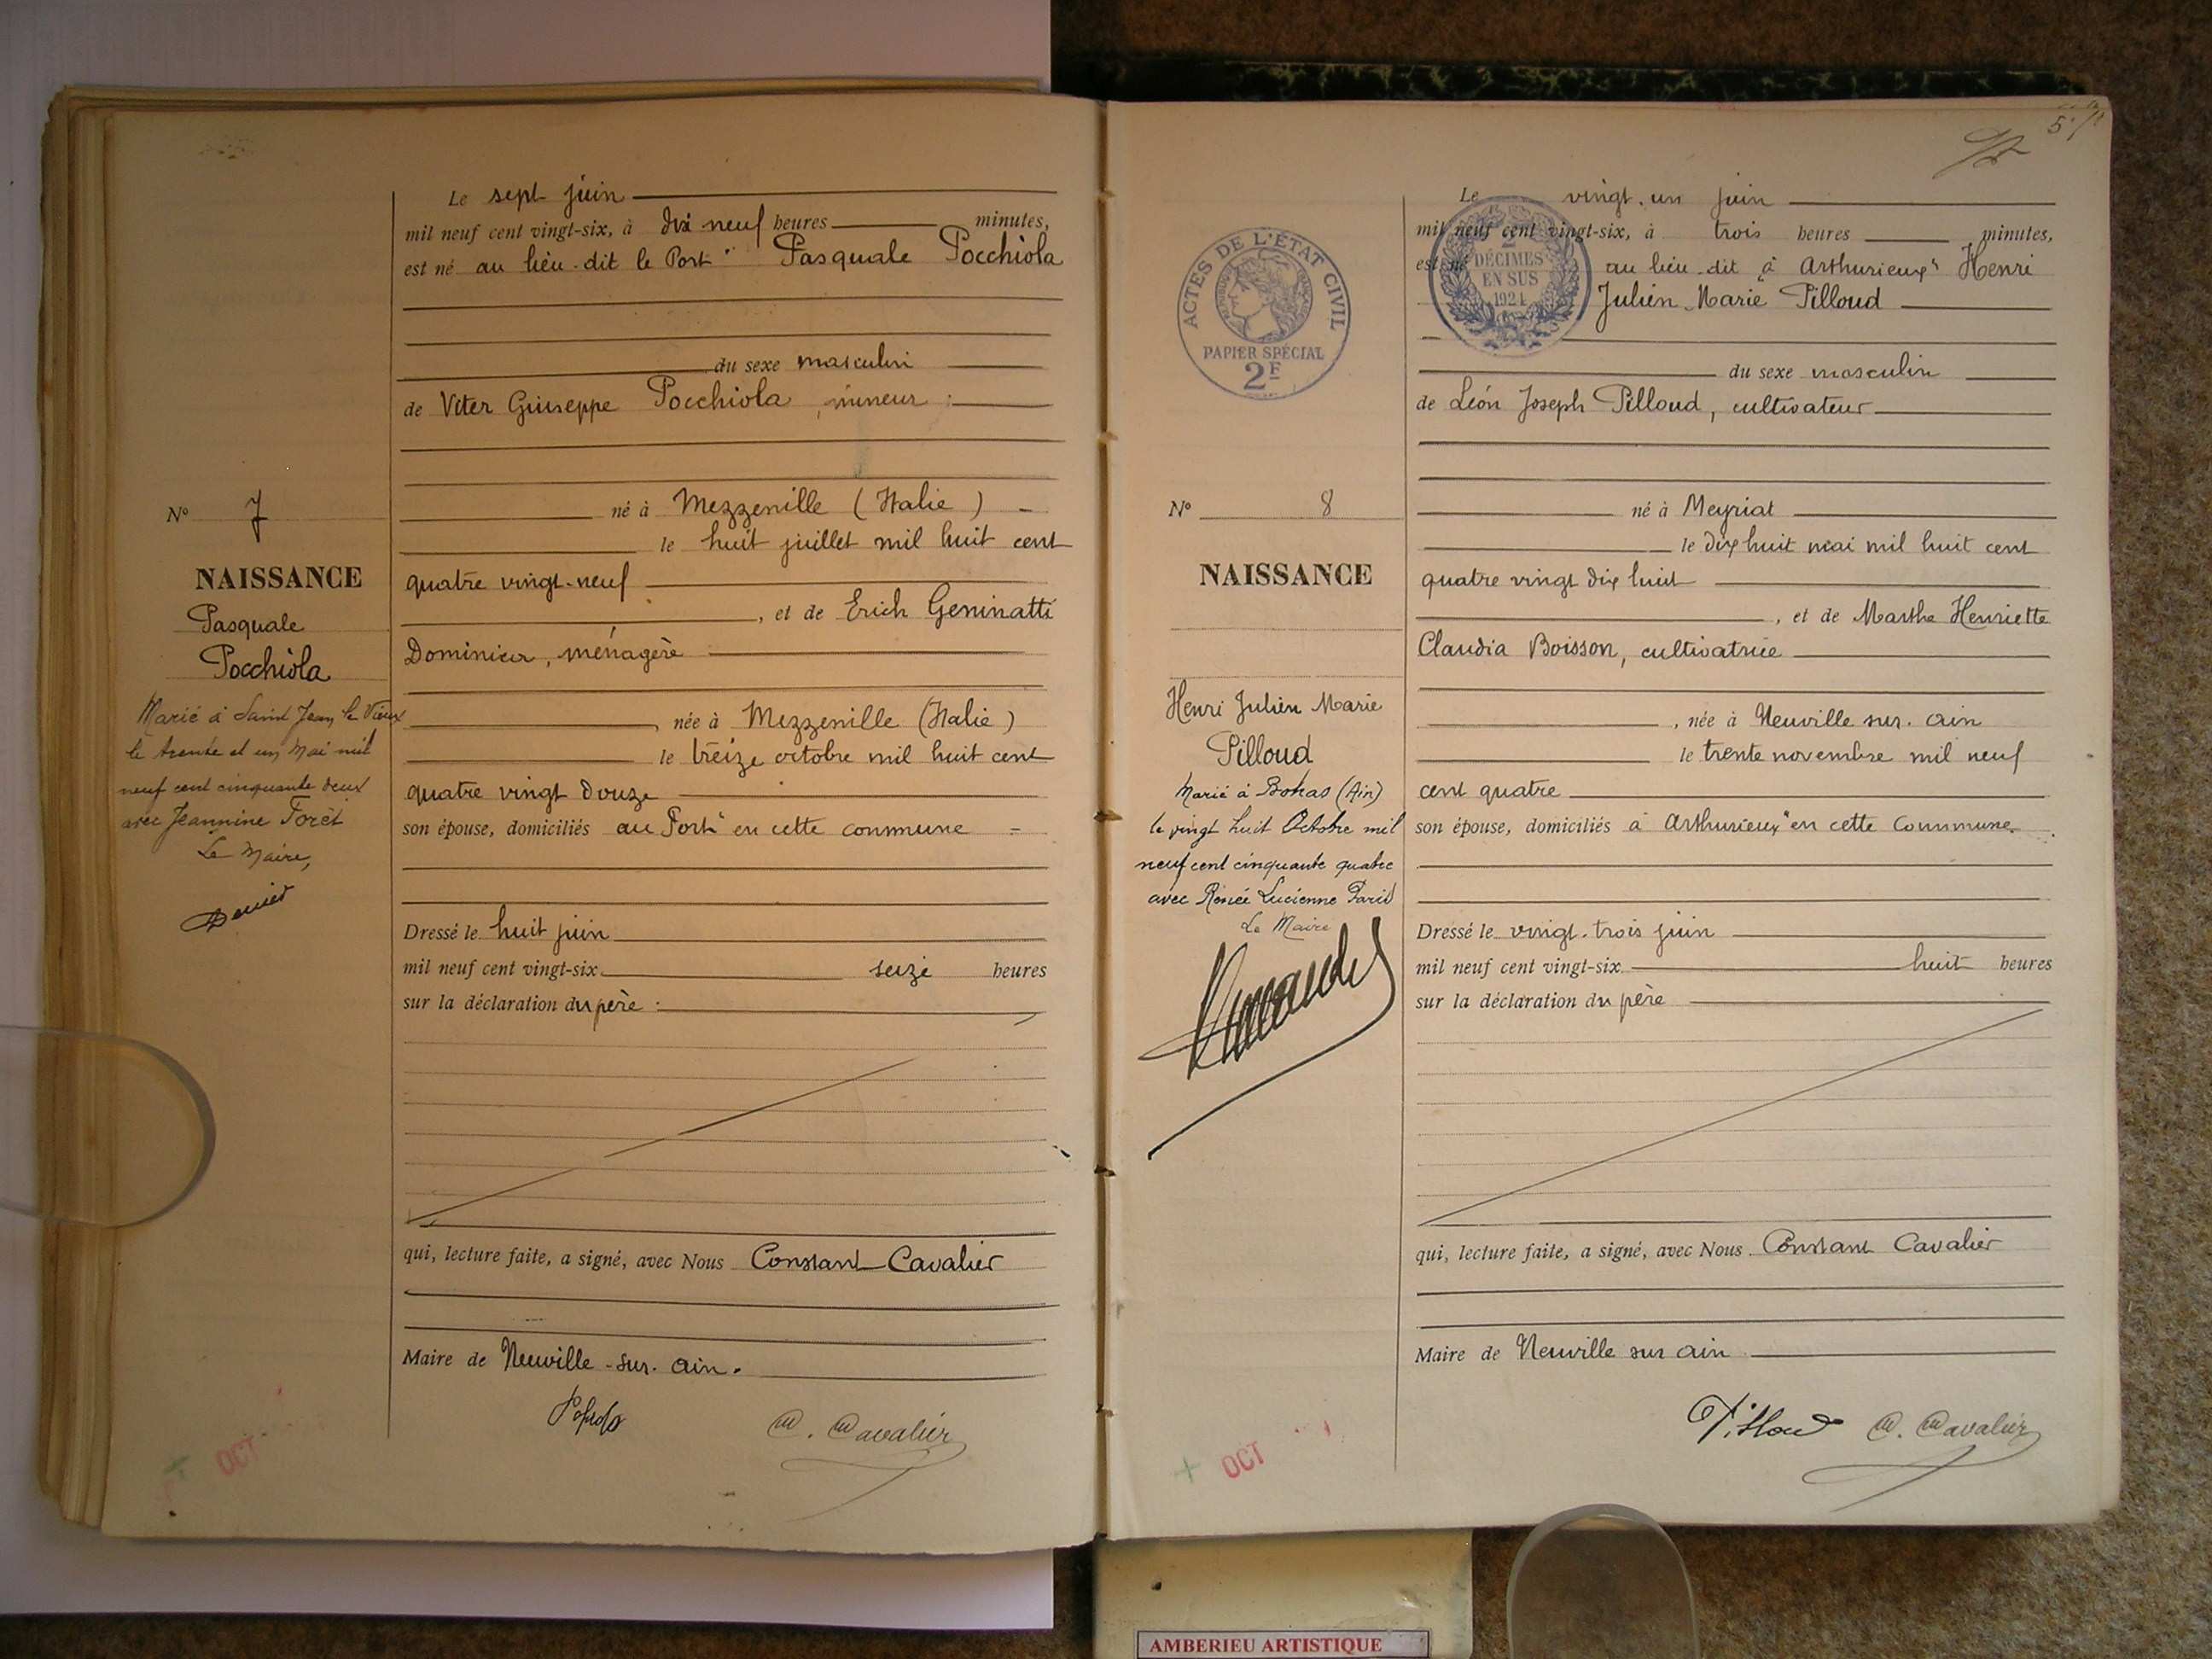 Le sept juin
mil neuf cent vingt-six, à dix neuf heures minutes,
est né au lieu-dit le Port" Pasquale Pocchiola
du sexe masculin
de Viter Giuseppe Pocchiola, mineur :
né à Mezzenille (Italie)
le huit juillet mil huit cent
quatre vingt-neuf
, et de Erich Geninatti
Dominica, ménagère
, née à Mezzenille (Italie)
le treize octobre mil huit cent
quatre vingt douze
son épouse, domiciliés au Port" en cette commune
Dressé le huit juin
mil neuf cent vingt-six seize heures
sur la déclaration du père :
qui, lecture faite, a signé, avec Nous Constant Cavalier
Maire de Neuville-sur-ain.
C. Cavalier
N° 7
NAISSANCE
Pasquale
Pocchiola
Marié à Saint Jean le Vieux
le trente et un Mai mil
neuf cent cinquante deux
avec Jeannine Forêt
Le Maire,
OCT
5
ACTES DE L'ÉTAT CIVIL
PAPIER SPÉCIAL
2F
2
DÉCIMES
EN SUS
1924
Le vingt-un juin
mil neuf cent vingt-six, à trois heures minutes,
est né au lieu-dit à Arthurieux" Henri
Julien Marie Pilloud
du sexe masculin
de Léon Joseph Pilloud, cultivateur
né à Meyriat
le dix huit mai mil huit cent
quatre vingt dix huit
, et de Marthe Henriette
Claudia Boisson, cultivatrice
, née à Neuville sur-ain
le trente novembre mil neuf
cent quatre
son épouse, domiciliés à Arthurieux" en cette commune.
Dressé le vingt-trois juin
mil neuf cent vingt-six huit heures
sur la déclaration du père
qui, lecture faite, a signé, avec Nous Constant Cavalier
Maire de Neuville sur ain
Pilloud C. Cavalier
N° 8
NAISSANCE
Henri Julien Marie
Pilloud
Marié à Bohas (Ain)
le vingt huit Octobre mil
neuf cent cinquante quatre
avec Renée Lucienne Paris
Le Maire
OCT
AMBERIEU ARTISTIQUE